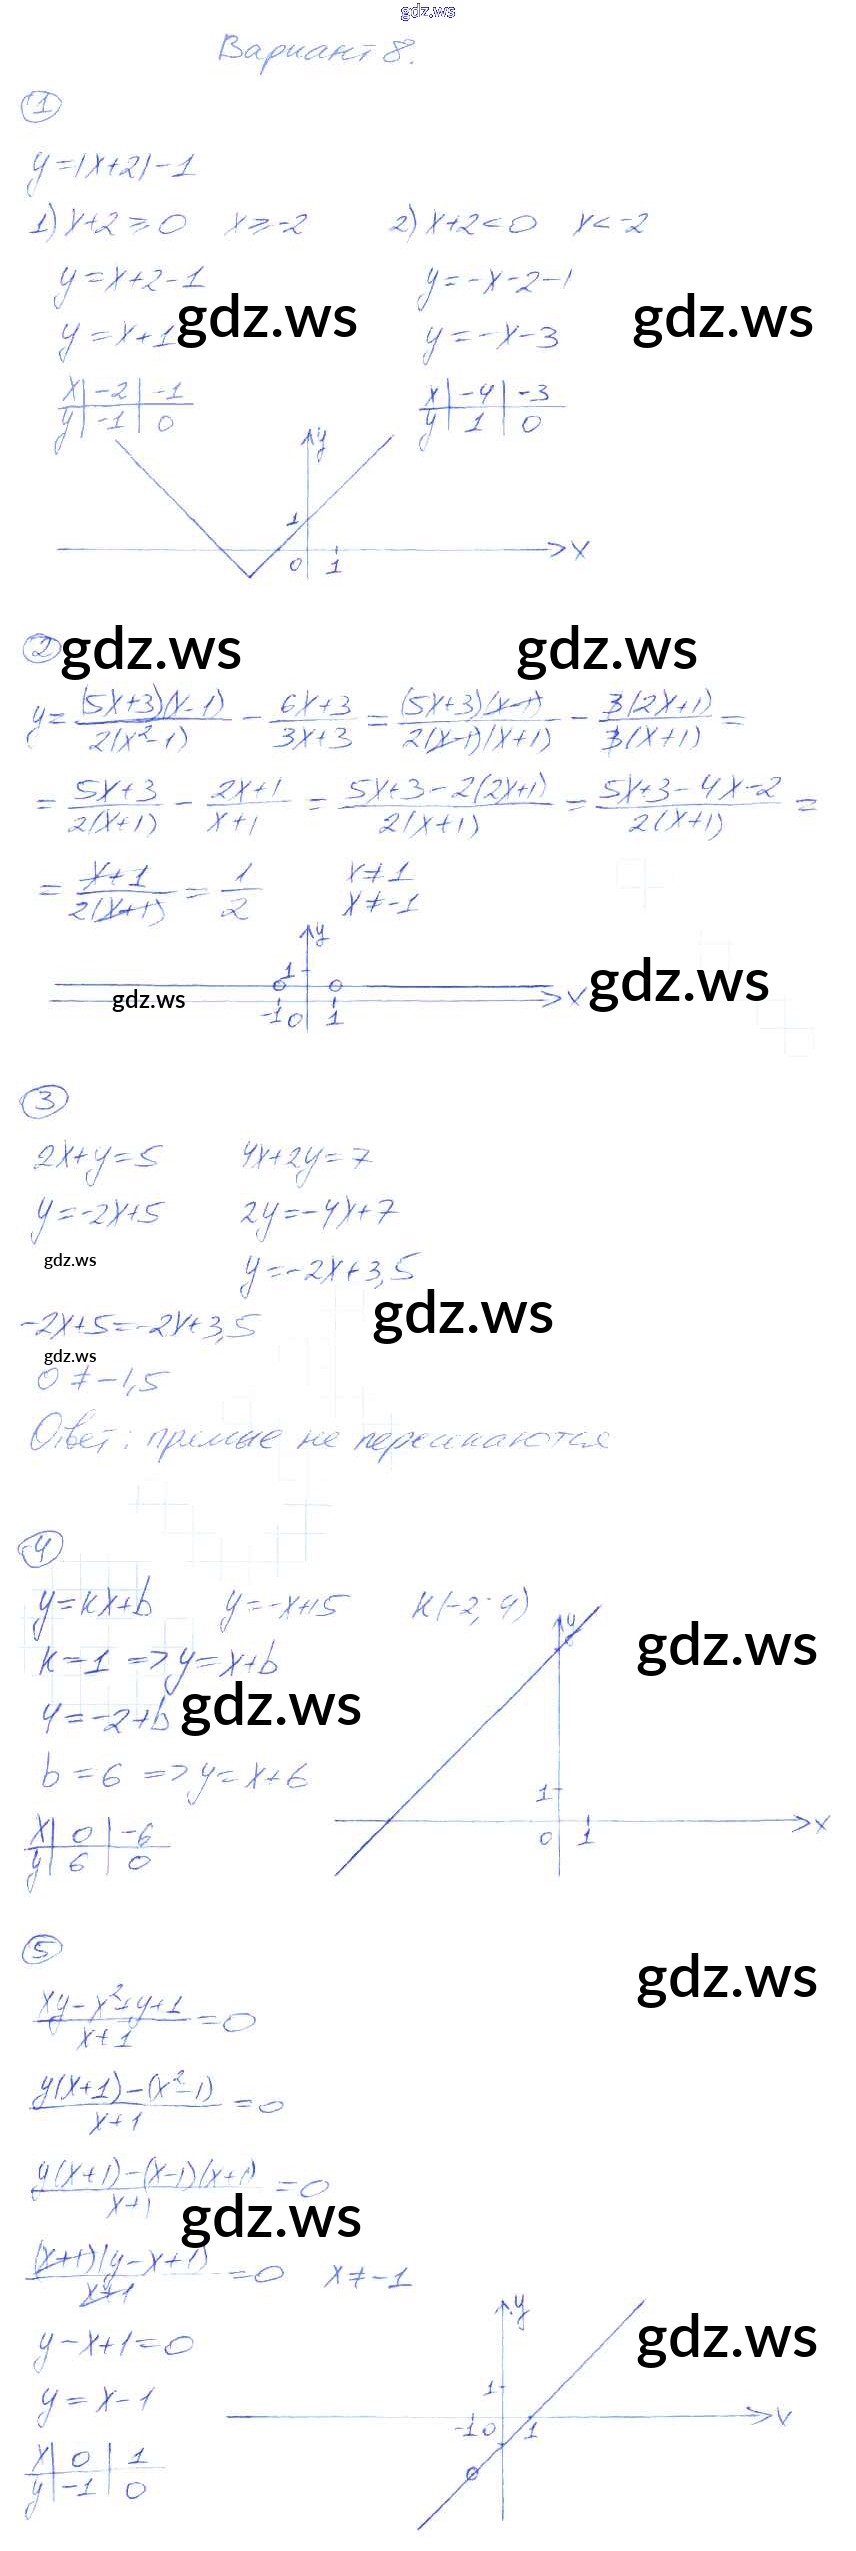 gdz.ws
Вариант 8.
1
y=|x+2|-1
1) x+2≥0 x≥-2 2) x+2<0 x<-2
y=x+2-1 y=-x-2-1
y=x+1 gdz.ws y=-x-3 gdz.ws
x | -2 | -1 x | -4 | -3
y | -1 | 0 y | 1 | 0
y
1
0 1 x
2 gdz.ws gdz.ws
y= (5x+3)(x-1)/2(x²-1) - (6x+3)/(3x+3) = (5x+3)(x-1)/2(x-1)(x+1) - 3(2x+1)/3(x+1) =
= (5x+3)/2(x+1) - (2x+1)/(x+1) = (5x+3-2(2x+1))/2(x+1) = (5x+3-4x-2)/2(x+1) =
= (x+1)/2(x+1) = 1/2 x≠1
x≠-1
y
1
gdz.ws x gdz.ws
-1 0 1
3
2x+y=5 4x+2y=7
y=-2x+5 2y=-4x+7
gdz.ws y=-2x+3,5
-2x+5=-2x+3,5 gdz.ws
gdz.ws
0≠-1,5
Ответ: прямые не пересикаются
4
y=kx+b y=-x+15 K(-2; 4)
k=1 => y=x+b y gdz.ws
4=-2+b gdz.ws
b=6 => y=x+6
1
x | 0 | -6 0 1 x
y | 6 | 0
5
gdz.ws
(xy-x²+y+1)/(x+1) =0
(y(x+1)-(x²-1))/(x+1) =0
(y(x+1)-(x-1)(x+1))/(x+1) =0
gdz.ws
((x+1)(y-x+1))/(x+1) =0 x≠-1
y
y-x+1=0 gdz.ws
y=x-1 1
-1 0 1 x
x | 0 | 1
y | -1 | 0